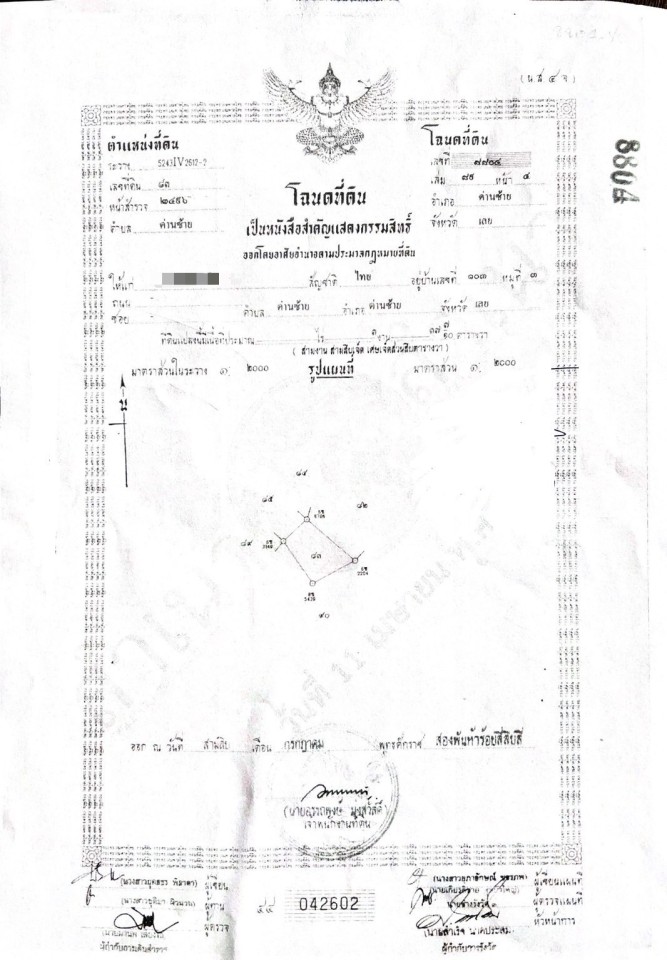 (น.ส ๔ จ)
ตำแหน่งที่ดิน
ระวาง 5243IV2612-2
เลขที่ดิน ๘๓
หน้าสำรวจ ๒๔๙๖
ตำบล ด่านซ้าย
โฉนดที่ดิน
เลขที่ ๗๗๐๔
เล่ม ๗๘ หน้า ๔
อำเภอ ด่านซ้าย
จังหวัด เลย
โฉนดที่ดิน
เป็นหนังสือสำคัญแสดงกรรมสิทธิ์
ออกโดยอาศัยอำนาจตามประมวลกฎหมายที่ดิน
ให้แก่ สัญชาติ ไทย อยู่บ้านเลขที่ ๑๐๓ หมู่ที่ ๓
ถนน
ซอย - ตำบล ด่านซ้าย อำเภอ ด่านซ้าย จังหวัด เลย
ที่ดินแปลงนี้มีเนื้อที่ประมาณ - ไร่ ๓ งาน ๓๗ ๗/๑๐ ตารางวา
( สามงาน สามสิบเจ็ด เศษเจ็ดส่วนสิบตารางวา )
มาตราส่วนในระวาง ๑: ๒๐๐๐ รูปแผนที่ มาตราส่วน ๑: ๒๐๐๐
น
๘๔
๘๕
๘๒
๘๙
๘๓
๙๐
ออก ณ วันที่ สามสิบ เดือน กรกฎาคม พุทธศักราช สองพันห้าร้อยสี่สิบสี่
เจ้าพนักงานที่ดิน
ผู้เขียน
ผู้ทาน
ผู้ตรวจ
ผู้กำกับการเดินสำรวจ
๔๔ 042602
ผู้เขียนแผนที่
ผู้ตรวจแผนที่
หัวหน้าการ
ผู้กำกับการรังวัด